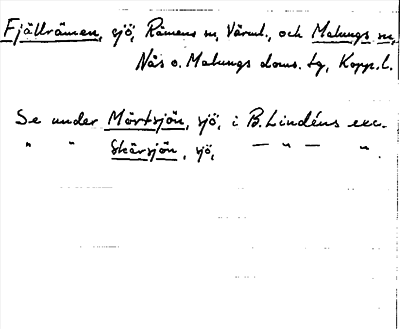 Fjällrämen, sjö, Rämens sn, Värml., och Malungs sn,
Nås o. Malungs doms. tg, Kopp. l.
Se under Mörtsjön, sjö, i B. Lindéns exc.
" " Skärsjön, sjö, — " — ".